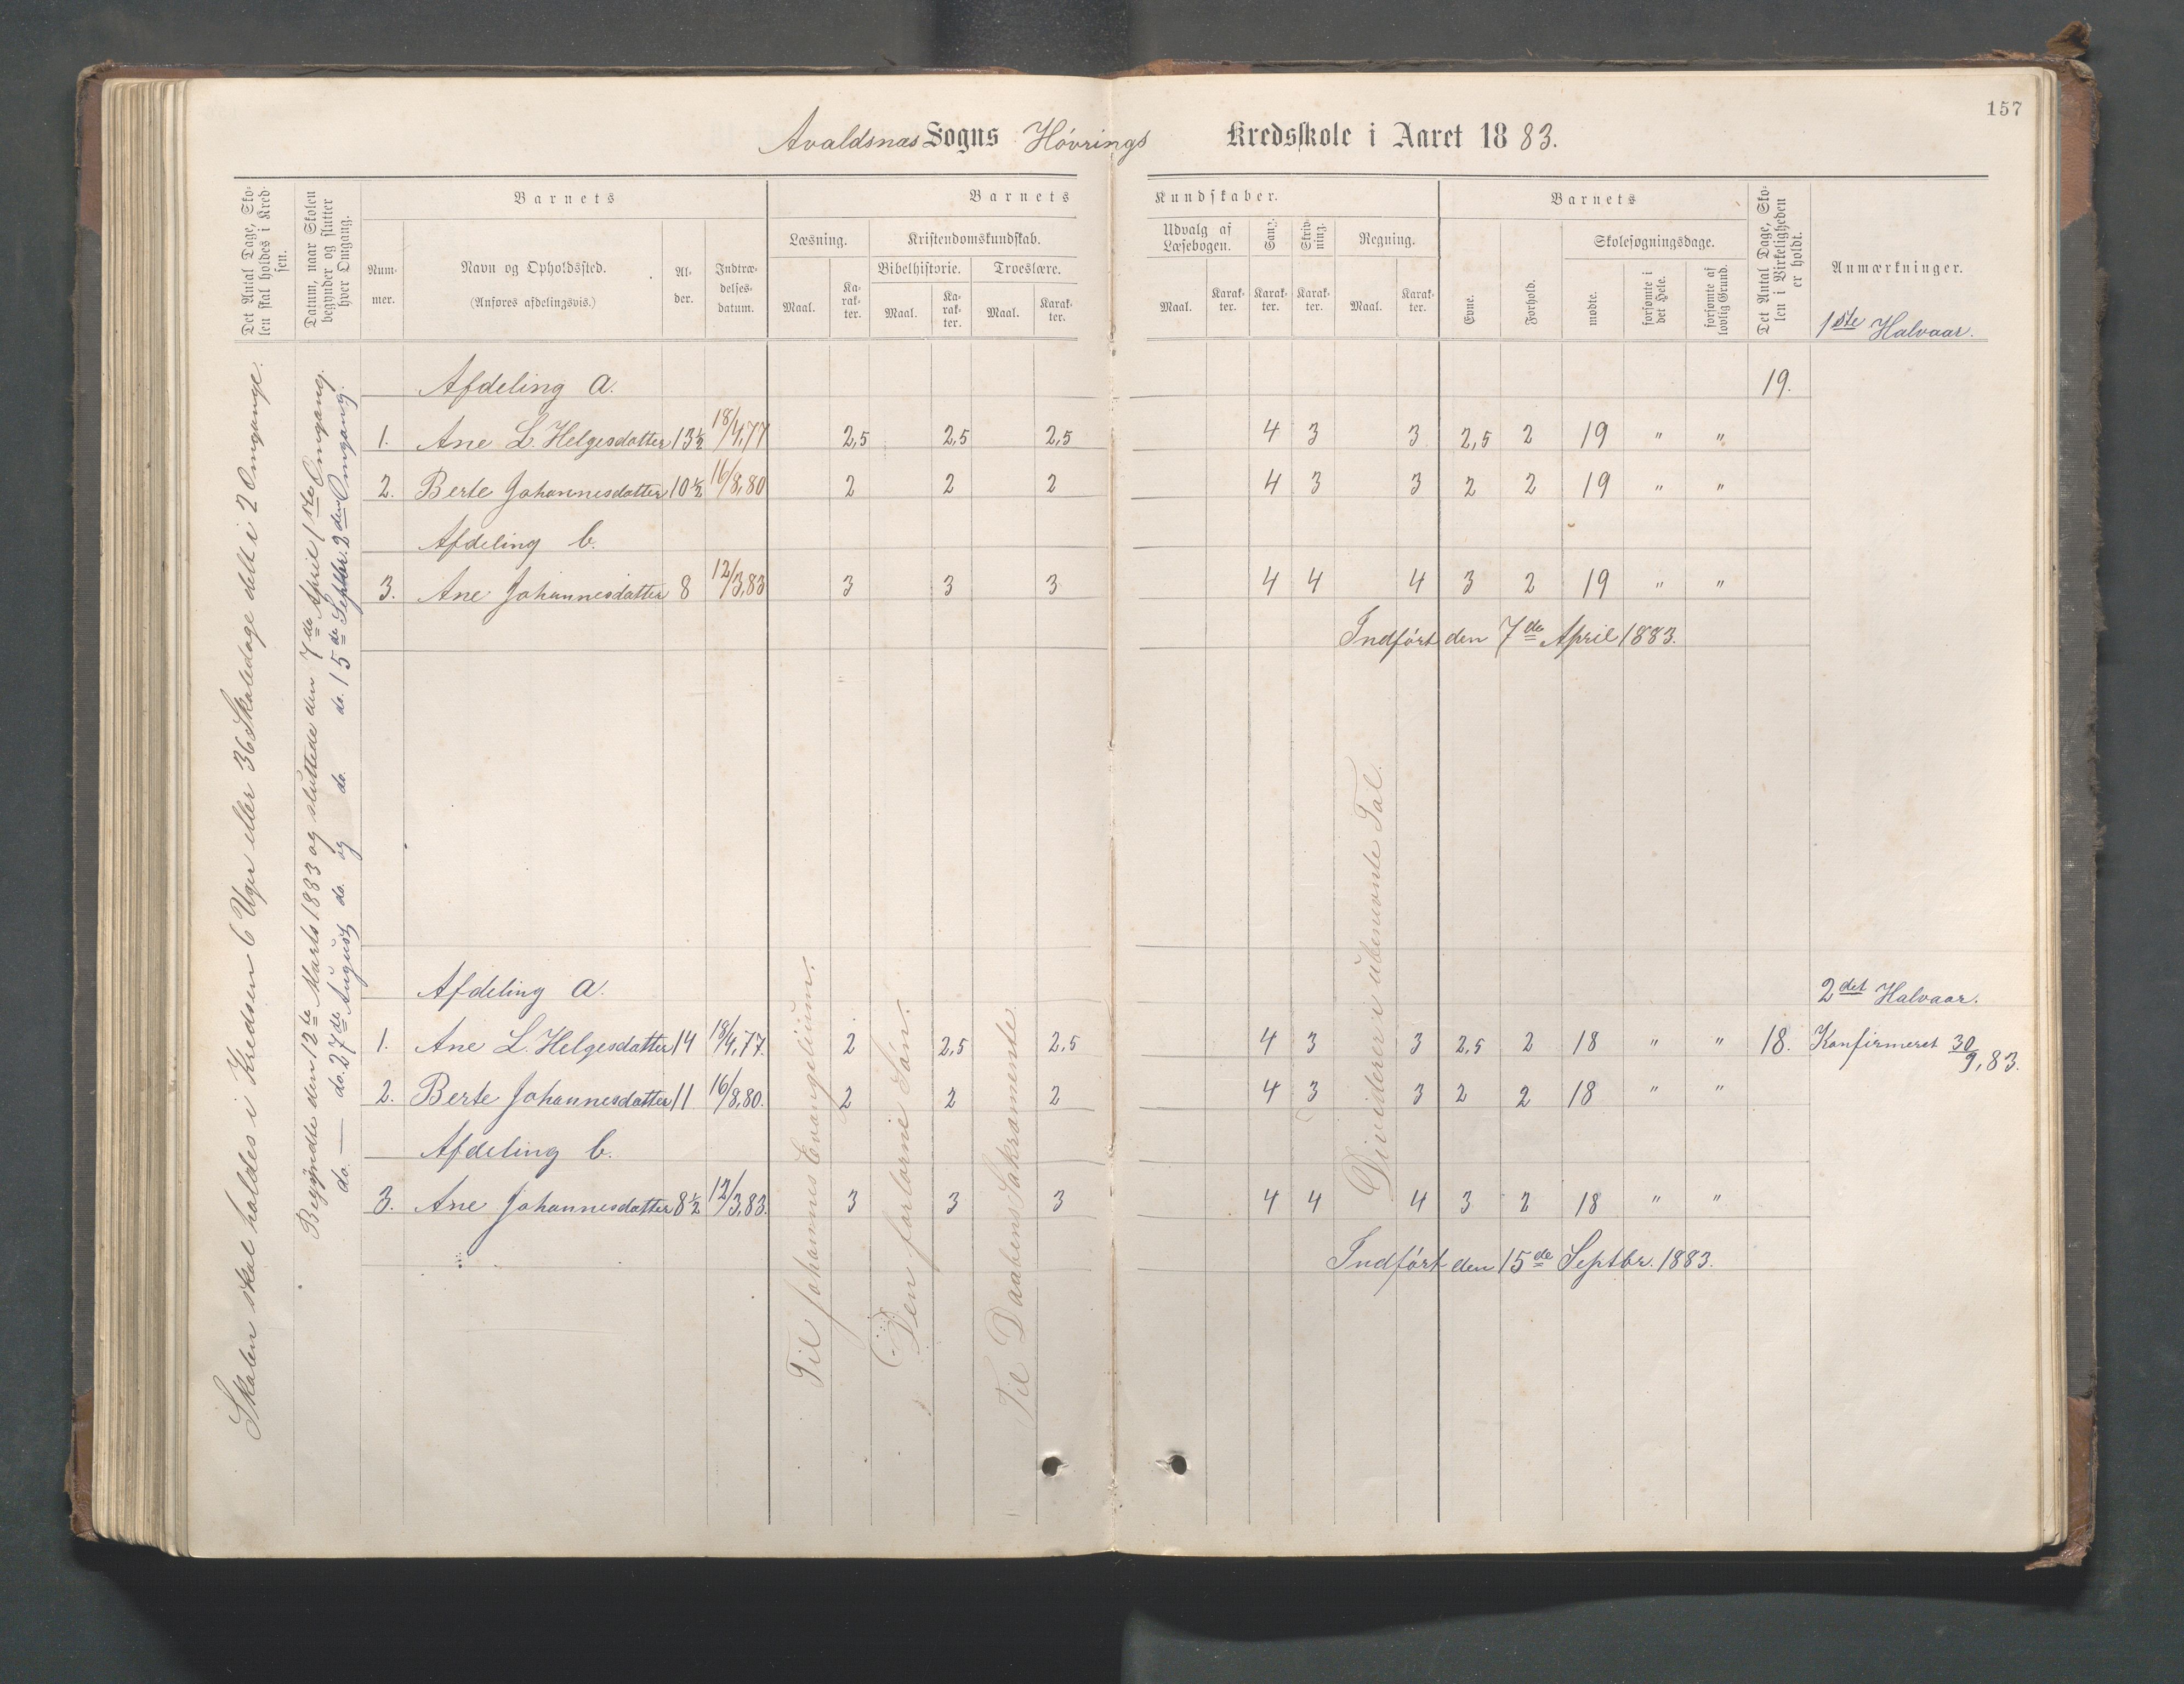 157
Avaldsnæs Sogns Hóvrings Kredsskole i Aaret 1883.
Det Antal Dage, Sko-
len skal holdes i Kred-
sen.
Datum, naar Skolen
begynder og slutter
hver Omgang.
Barnets
Num-
mer.
Navn og Opholdssted.
(Anføres afdelingsvis.)
Al-
der.
Indtræ-
delses-
datum.
Barnets Kundskaber.
Læsning.
Maal.
Ka-
rak-
ter.
Kristendomskundskab.
Bibelhistorie.
Maal.
Ka-
rak-
ter.
Troeslære.
Maal.
Karak-
ter.
Udvalg af
Læsebogen.
Maal.
Karak-
ter.
Sang.
Karak-
ter.
Skriv-
ning.
Karak-
ter.
Regning.
Maal.
Karak-
ter.
Barnets
Evne.
Forhold.
Skolesøgningsdage.
mødte.
forsømte i
det Hele.
forsømte af
lovlig Grund.
Det Antal Dage, Sko-
len i Virkeligheden
er holdt.
Anmærkninger.
1ste Halvaar.
Skolen skal holdes i Kredsen 6 Uger eller 36 Skoledage delt i 2 Omgange.
Begyndte den 12te Marts 1883 og sluttede den 7de April 1ste Omgang.
do. — do. 27de August do. og do. do. 15de Septbr. 2den Omgang.
Afdeling a. 19.
1. Ane L. Helgesdatter 13½ 18/4,77 2,5 2,5 2,5 4 3 3 2,5 2 19 " "
2. Berte Johannesdatter 10½ 16/8,80 2 2 2 4 3 3 2 2 19 " "
Afdeling b.
3. Ane Johannesdatter 8 12/3,83 3 3 3 4 4 4 3 2 19 " "
Indfórt den 7de April 1883.
Afdeling a. 2det Halvaar.
1. Ane L. Helgesdatter 14 18/4,77. 2 2,5 2,5 4 3 3 2,5 2 18 " " 18. Konfirmeret 30/9,83.
2. Berte Johannesdatter 11 16/8,80. 2 2 2 4 3 3 2 2 18 " "
Afdeling b.
3. Ane Johannesdatter 8½ 12/3,83. 3 3 3 4 4 4 3 2 18 " "
Indfórt den 15de Septbr. 1883.
Til Johannes Evangelium.
Den forlorne Són.
Til Daabens Sakramente.
Dividerer i ubenevnte Tal.